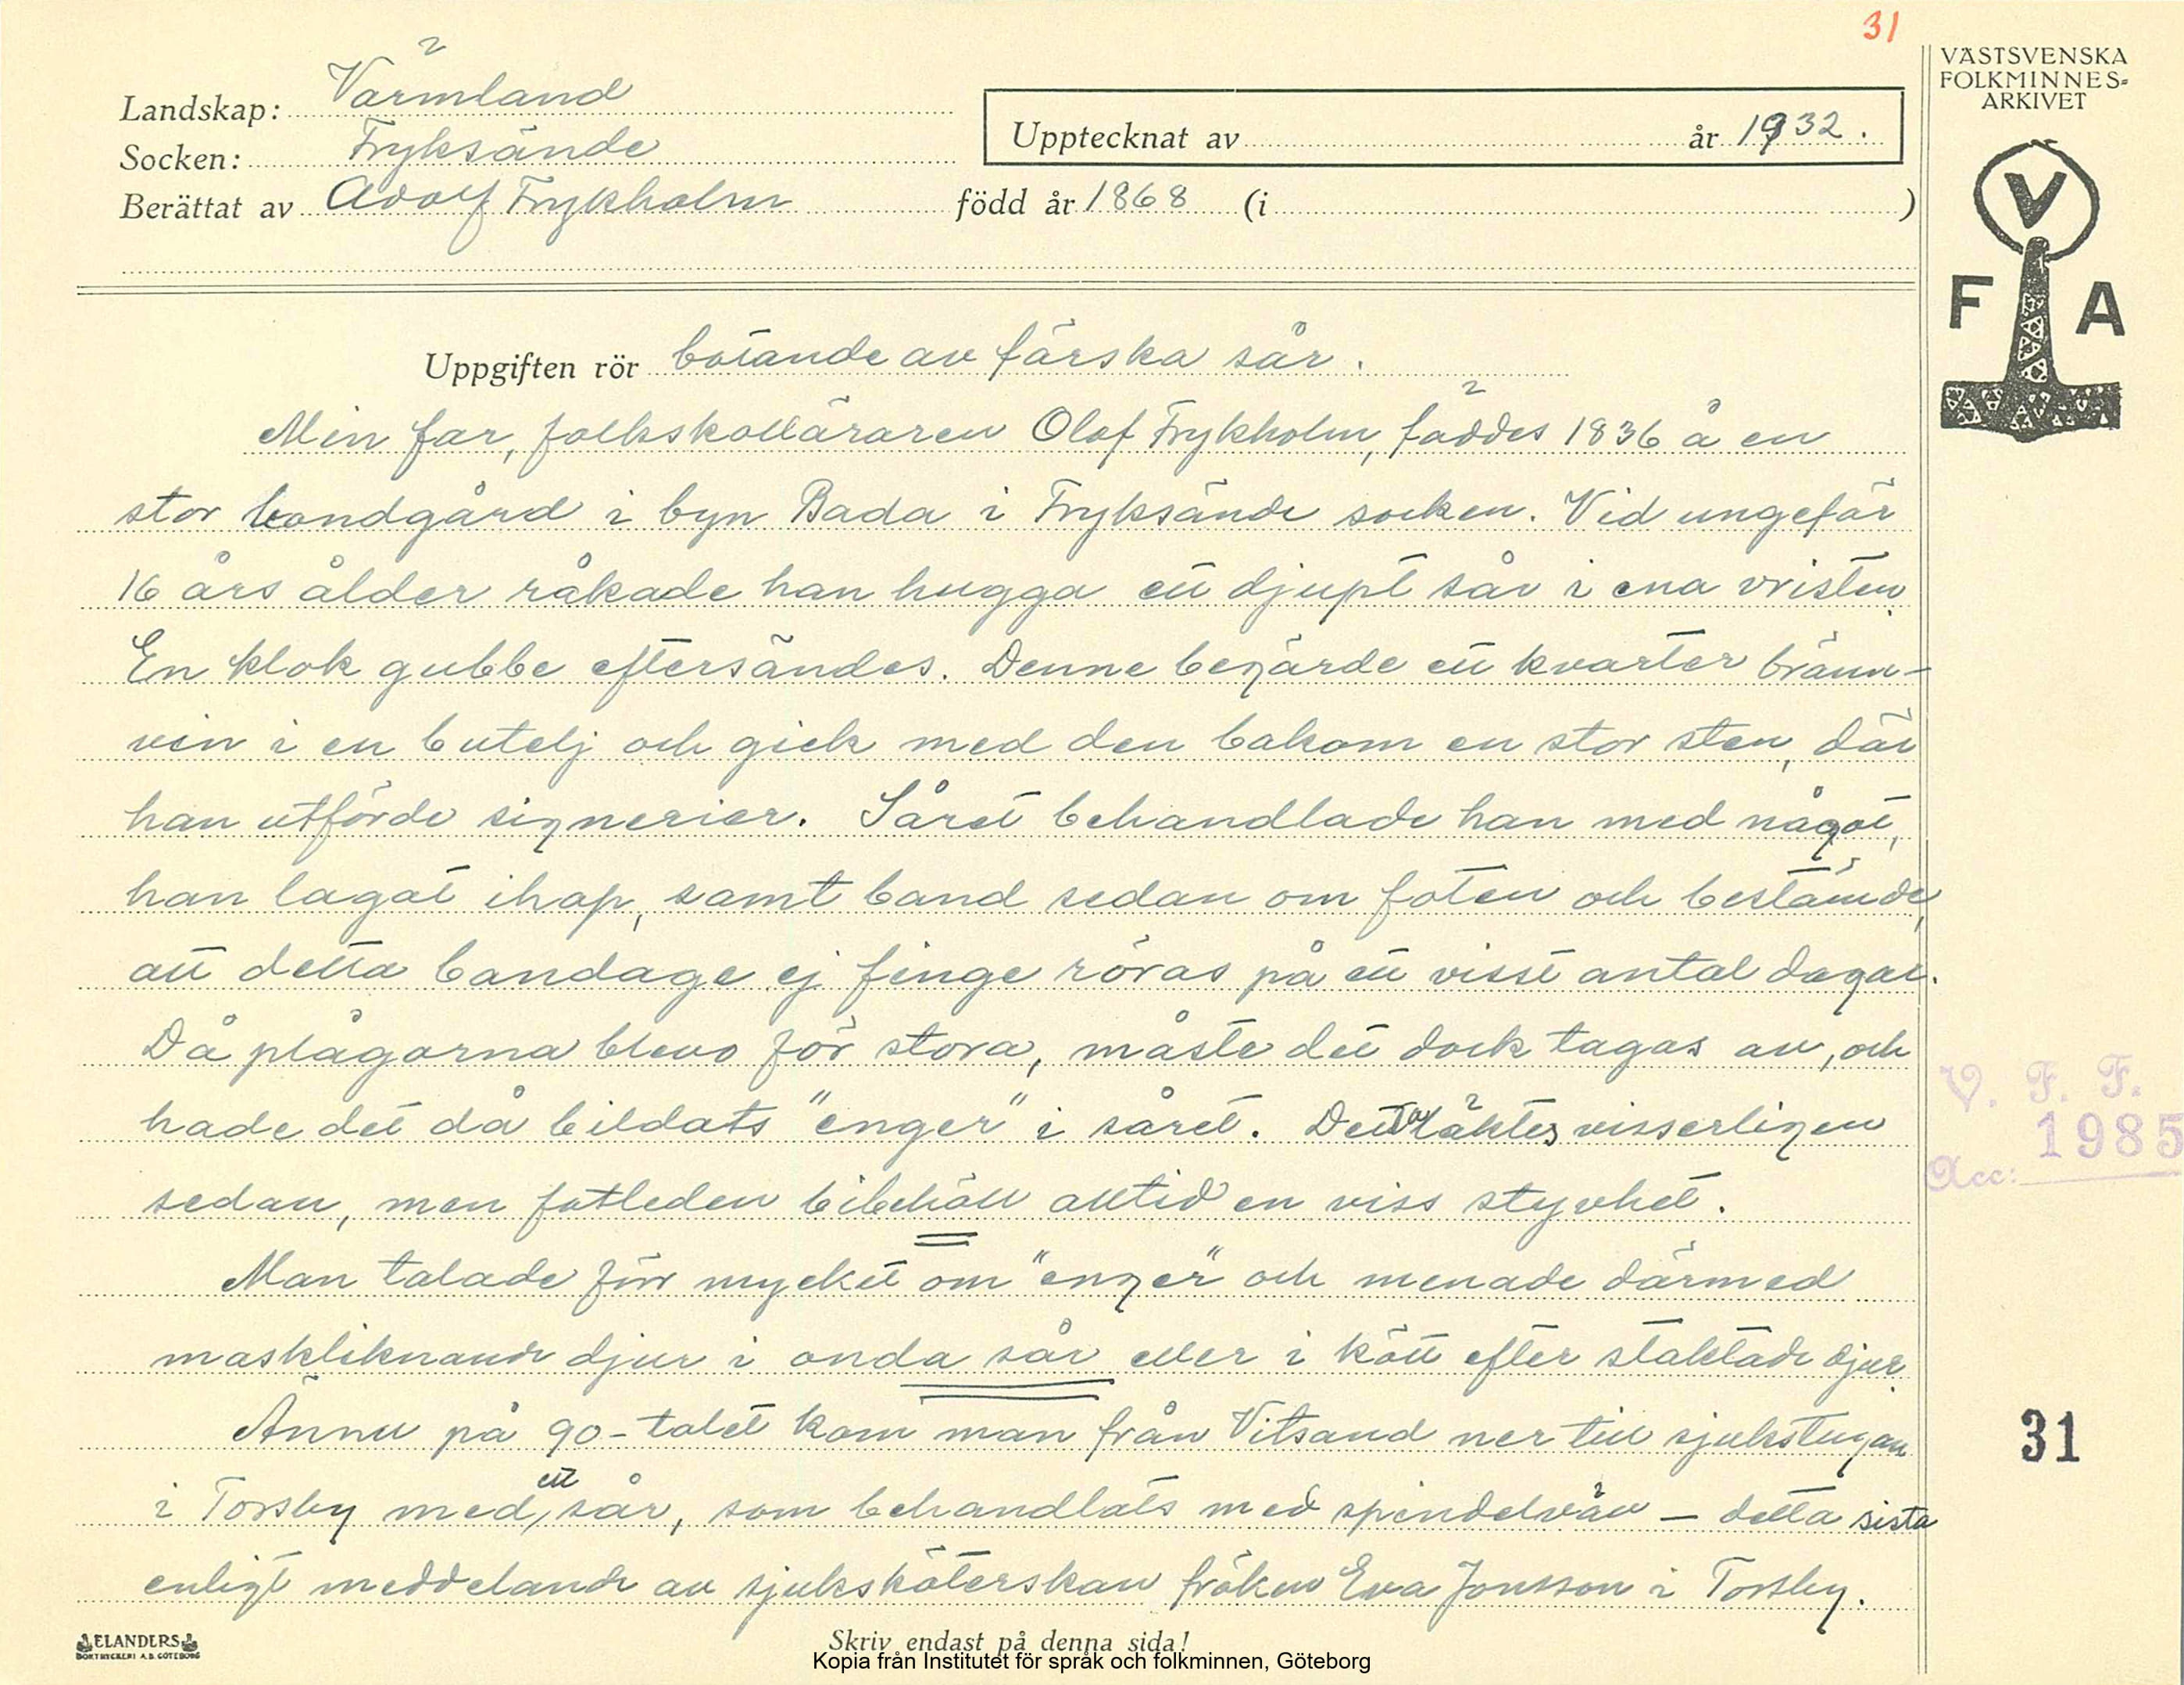 31
VÄSTSVENSKA
FOLKMINNES-
ARKIVET
Landskap: Värmland
Socken: Fryksände
Upptecknat av år 1932.
Berättat av Adolf Frykholm född år 1868 (i )
V
F A
Uppgiften rör botande av färska sår.
Min far, folkskolläraren Olof Frykholm, föddes 1836 å en
stor bondgård i byn Bada i Fryksände socken. Vid ungefär
16 års ålder råkade han hugga ett djupt sår i ena vristen.
En klok gubbe eftersändes. Denne begärde ett kvarter bränn-
vin i en butelj och gick med den bakom en stor sten, där
han utförde signerier. Såret behandlade han med något,
han lagat ihop, samt band sedan om foten och bestämde,
att detta bandage ej finge röras på ett visst antal dagar.
Då plågorna blevo för stora, måste det dock tagas av, och
hade det då bildats "enger" i såret. Detta läktes visserligen
sedan, men fotleden bibehöll alltid en viss styvhet.
Man talade förr mycket om "enger" och menade därmed
maskliknande djur i onda sår eller i kött efter slaktade djur.
Ännu på 90-talet kom man från Vitsand ner till sjukstugan
i Torsby med ett sår, som behandlats med spindelväv – detta sista
enligt meddelande av sjuksköterskan fröken Eva Jonsson i Torsby.
V. F. F.
Acc: 1985
31
ELANDERS
BOKTRYCKERI A.B. GÖTEBORG
Skriv endast på denna sida!
Kopia från Institutet för språk och folkminnen, Göteborg